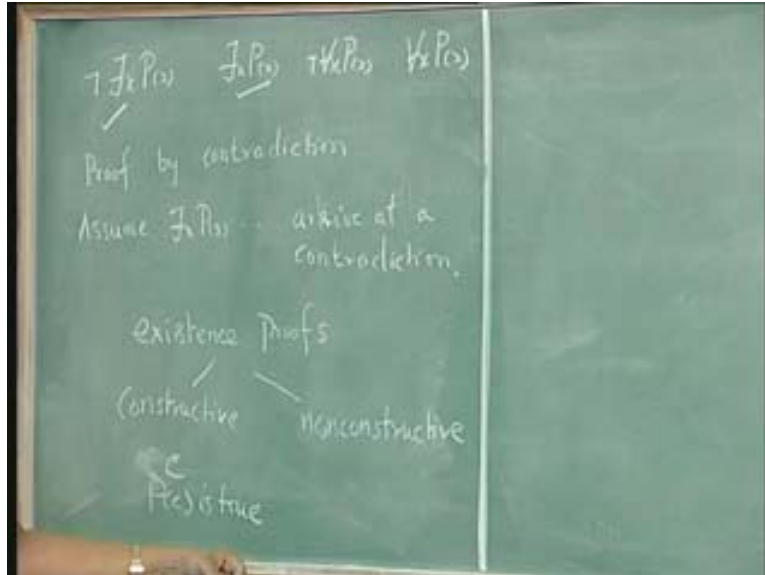 ¬∃x P(x) ∃x P(x) ¬∀x P(x) ∀x P(x)
Proof by contradiction
Assume ∃x P(x) ... arrive at a
contradiction.
existence proofs
Constructive nonconstructive
C
P(c) is true